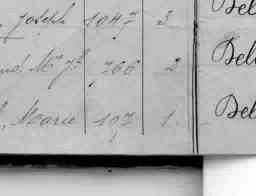 Joseph 1047 3
Bel
Md. Mie Jh 766 2
Bel
Marie 197 1
Bel